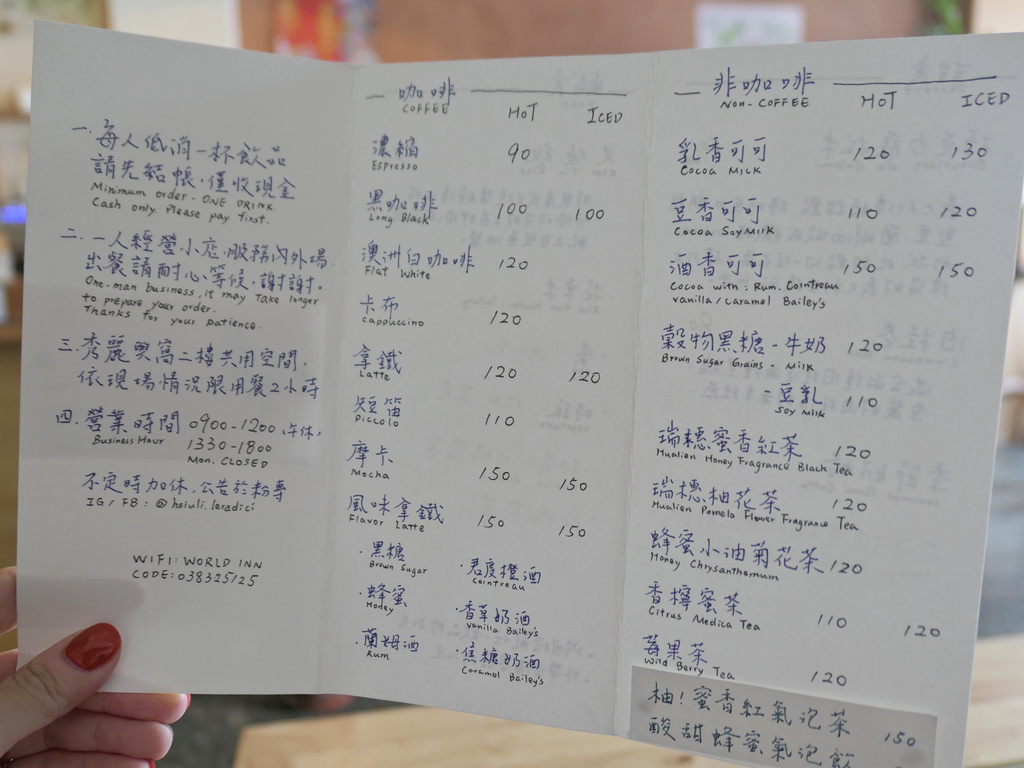 一. 每人低消一杯飲品
請先結帳.僅收現金
Minimum order. ONE DRINK
Cash only. Please pay first.
二. 一人經營小店.服務內外場.
出餐請耐心等候.謝謝。
One-man business, it may take longer
to prepare your order.
Thanks for your patience.
三. 秀麗與窩二樓共用空間.
依現場情況限用餐2小時
四. 營業時間 0900-1200、午休,
Business Hour 1330-1800
Mon. CLOSED
不定時加休.公告於粉專
IG / FB : @hsiuli.leradici
WIFI: WORLD INN
CODE: 038325125
咖啡 HOT ICED
COFFEE
濃縮 90
Espresso
黑咖啡 100 100
Long Black
澳洲白咖啡 120
Flat White
卡布 120
Cappuccino
拿鐵 120 120
Latte
短笛 110
Piccolo
摩卡 150 150
Mocha
風味拿鐵 150 150
Flavor Latte
·黑糖 ·君度橙酒
Brown Sugar Cointreau
·蜂蜜 ·香草奶酒
Honey Vanilla Bailey's
·蘭姆酒 ·焦糖奶酒
Rum Caramel Bailey's
非咖啡 HOT ICED
NON-COFFEE
乳香可可 120 130
Cocoa Milk
豆香可可 110 120
Cocoa SoyMilk
酒香可可 150 150
Cocoa with: Rum. Cointreau
vanilla/caramel Bailey's
穀物黑糖 - 牛奶 120
Brown Sugar Grains - Milk
- 豆乳 110
Soy Milk
瑞穗蜜香紅茶 120
Hualien Honey Fragrance Black Tea
瑞穗柚花茶 120
Hualien Pomelo Flower Fragrance Tea
蜂蜜小油菊花茶 120
Honey Chrysanthemum
香檸蜜茶 110 120
Citrus Medica Tea
莓果茶 120
Wild Berry Tea
柚!蜜香紅氣泡茶 150
酸甜蜂蜜氣泡飲